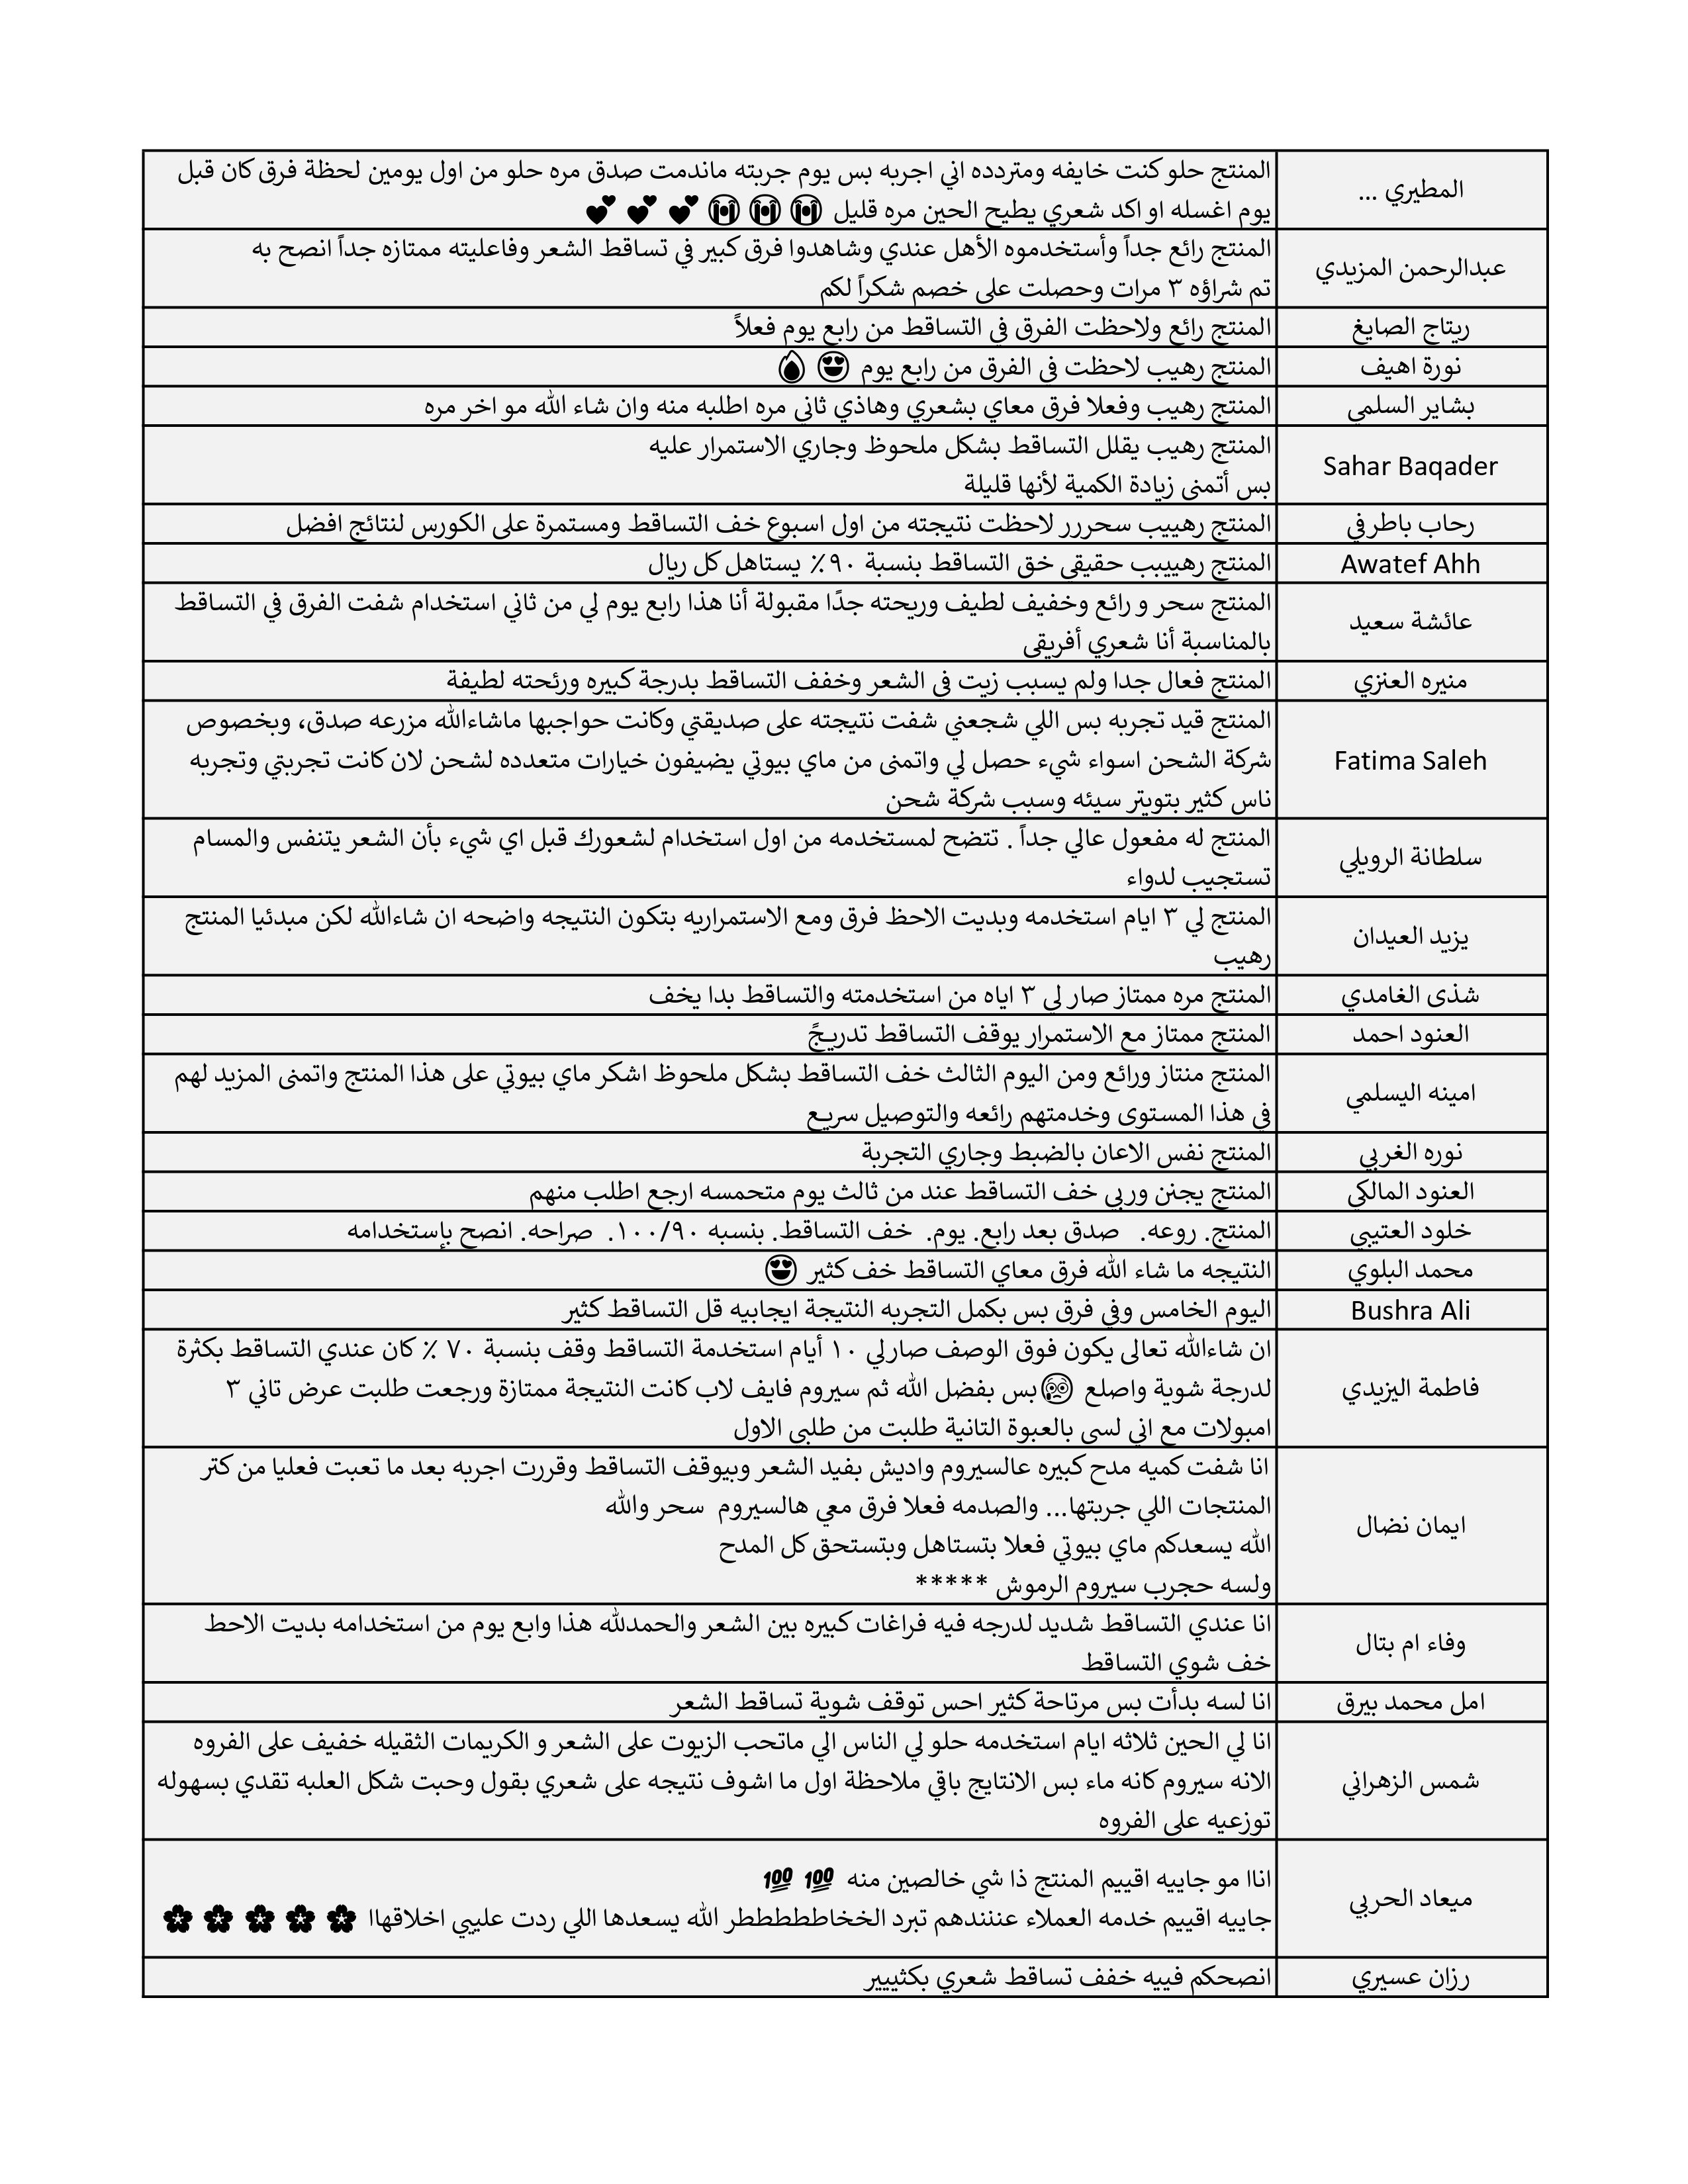 المطيري ...
المنتج حلو كنت خايفه ومتردده اني اجربه بس يوم جربته ماندمت صدق مره حلو من اول يومين لحظة فرق كان قبل
يوم اغسله او اكد شعري يطيح الحين مره قليل 😭 😭 😭 💕 💕 💕
عبدالرحمن المزيدي
المنتج رائع جداً وأستخدموه الأهل عندي وشاهدوا فرق كبير في تساقط الشعر وفاعليته ممتازه جداً انصح به
تم شراؤه ٣ مرات وحصلت على خصم شكراً لكم
ريتاج الصايغ
المنتج رائع ولاحظت الفرق في التساقط من رابع يوم فعلاً
نورة اهيف
المنتج رهيب لاحظت في الفرق من رابع يوم 😍 🔥
بشاير السلمي
المنتج رهيب وفعلا فرق معاي بشعري وهاذي ثاني مره اطلبه منه وان شاء الله مو اخر مره
Sahar Baqader
المنتج رهيب يقلل التساقط بشكل ملحوظ وجاري الاستمرار عليه
بس أتمنى زيادة الكمية لأنها قليلة
رحاب باطرفي
المنتج رهييب سحررر لاحظت نتيجته من اول اسبوع خف التساقط ومستمرة على الكورس لنتائج افضل
Awatef Ahh
المنتج رهيييب حقيقي خق التساقط بنسبة ٩٠٪ يستاهل كل ريال
عائشة سعيد
المنتج سحر و رائع وخفيف لطيف وريحته جدًا مقبولة أنا هذا رابع يوم لي من ثاني استخدام شفت الفرق في التساقط
بالمناسبة أنا شعري أفريقي
منيره العنزي
المنتج فعال جدا ولم يسبب زيت في الشعر وخفف التساقط بدرجة كبيره ورئحته لطيفة
Fatima Saleh
المنتج قيد تجربه بس اللي شجعني شفت نتيجته على صديقتي وكانت حواجبها ماشاءالله مزرعه صدق، وبخصوص
شركة الشحن اسواء شيء حصل لي واتمنى من ماي بيوتي يضيفون خيارات متعدده لشحن لان كانت تجربتي وتجربه
ناس كثير بتويتر سيئه وسبب شركة شحن
سلطانة الرويلي
المنتج له مفعول عالي جداً . تتضح لمستخدمه من اول استخدام لشعورك قبل اي شيء بأن الشعر يتنفس والمسام
تستجيب لدواء
يزيد العيدان
المنتج لي ٣ ايام استخدمه وبديت الاحظ فرق ومع الاستمراريه بتكون النتيجه واضحه ان شاءالله لكن مبدئيا المنتج
رهيب
شذى الغامدي
المنتج مره ممتاز صار لي ٣ اياه من استخدمته والتساقط بدا يخف
العنود احمد
المنتج ممتاز مع الاستمرار يوقف التساقط تدريجً
امينه اليسلمي
المنتج منتاز ورائع ومن اليوم الثالث خف التساقط بشكل ملحوظ اشكر ماي بيوتي على هذا المنتج واتمنى المزيد لهم
في هذا المستوى وخدمتهم رائعه والتوصيل سريع
نوره الغربي
المنتج نفس الاعان بالضبط وجاري التجربة
العنود المالكي
المنتج يجنن وربي خف التساقط عند من ثالث يوم متحمسه ارجع اطلب منهم
خلود العتيبي
المنتج. روعه. صدق بعد رابع. يوم. خف التساقط. بنسبه ١٠٠/٩٠. صراحه. انصح بإستخدامه
محمد البلوي
النتيجه ما شاء الله فرق معاي التساقط خف كثير 😍
Bushra Ali
اليوم الخامس وفي فرق بس بكمل التجربه النتيجة ايجابيه قل التساقط كثير
فاطمة اليزيدي
ان شاءالله تعالى يكون فوق الوصف صارلي ١٠ أيام استخدمة التساقط وقف بنسبة ٧٠ ٪ كان عندي التساقط بكثرة
لدرجة شوية واصلع 😢بس بفضل الله ثم سيروم فايف لاب كانت النتيجة ممتازة ورجعت طلبت عرض تاني ٣
امبولات مع اني لسى بالعبوة التانية طلبت من طلبى الاول
ايمان نضال
انا شفت كميه مدح كبيره عالسيروم واديش بفيد الشعر وبيوقف التساقط وقررت اجربه بعد ما تعبت فعليا من كتر
المنتجات اللي جربتها... والصدمه فعلا فرق معي هالسيروم سحر والله
الله يسعدكم ماي بيوتي فعلا بتستاهل وبتستحق كل المدح
ولسه حجرب سيروم الرموش *****
وفاء ام بتال
انا عندي التساقط شديد لدرجه فيه فراغات كبيره بين الشعر والحمدلله هذا وابع يوم من استخدامه بديت الاحط
خف شوي التساقط
امل محمد بيرق
انا لسه بدأت بس مرتاحة كثير احس توقف شوية تساقط الشعر
شمس الزهراني
انا لي الحين ثلاثه ايام استخدمه حلو لي الناس الي ماتحب الزيوت على الشعر و الكريمات الثقيله خفيف على الفروه
الانه سيروم كانه ماء بس الانتايج باقي ملاحظة اول ما اشوف نتيجه على شعري بقول وحبت شكل العلبه تقدي بسهوله
توزعيه على الفروه
ميعاد الحربي
اناا مو جاييه اقييم المنتج ذا شي خالصين منه 💯 💯
جاييه اقييم خدمه العملاء عننندهم تبرد الخخاطططططر الله يسعدها اللي ردت علييي اخلاقهاا 🌸 🌸 🌸 🌸 🌸
رزان عسيري
انصحكم فييه خفف تساقط شعري بكثييير